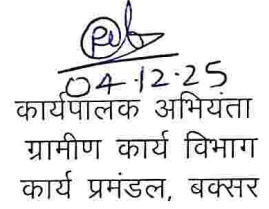 04.12.25
कार्यपालक अभियंता
ग्रामीण कार्य विभाग
कार्य प्रमंडल, बक्सर